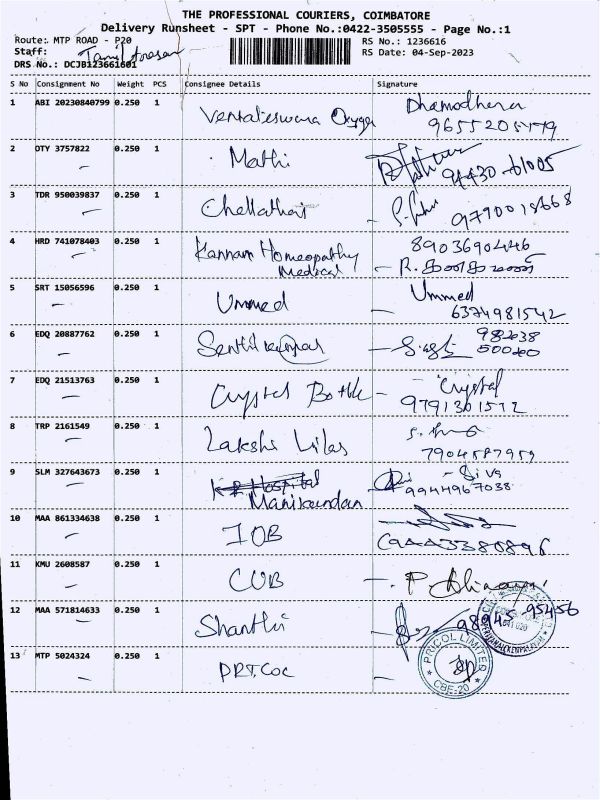 THE PROFESSIONAL COURIERS, COIMBATORE
Delivery Runsheet - SPT - Phone No.:0422-3505555 - Page No.:1
Route: MTP ROAD - P20
RS No.: 1236616
Staff:
RS Date: 04-Sep-2023
DRS No.: DCJB123661601
S No Consignment No Weight PCS Consignee Details Signature
1 ABI 20230840799 0.250 1 Dhamodharan
9655205479
2 OTY 3757822 0.250 1 Mathi
3 TDR 950039837 0.250 1 Chellathai
9790018668
4 HRD 741078403 0.250 1 Kannam Homeopathy 8903690446
Medical
5 SRT 15056596 0.250 1 Ummed Ummed
6374981542
6 EDQ 20887762 0.250 1 Senthil kumar 982638
500200
7 EDQ 21513763 0.250 1 Crystal Bottle Crystal
9791301572
8 TRP 2161549 0.250 1 Lakshi Vilas
7904587959
9 SLM 327643673 0.250 1 K R Hospital Siva
Manikandan 9944967038
10 MAA 861334638 0.250 1 IOB
11 KMU 2608587 0.250 1 CUB
12 MAA 571814633 0.250 1 Shanthi 98945-95456
13 MTP 5024324 0.250 1
PRICOL LIMITED
CBE-20